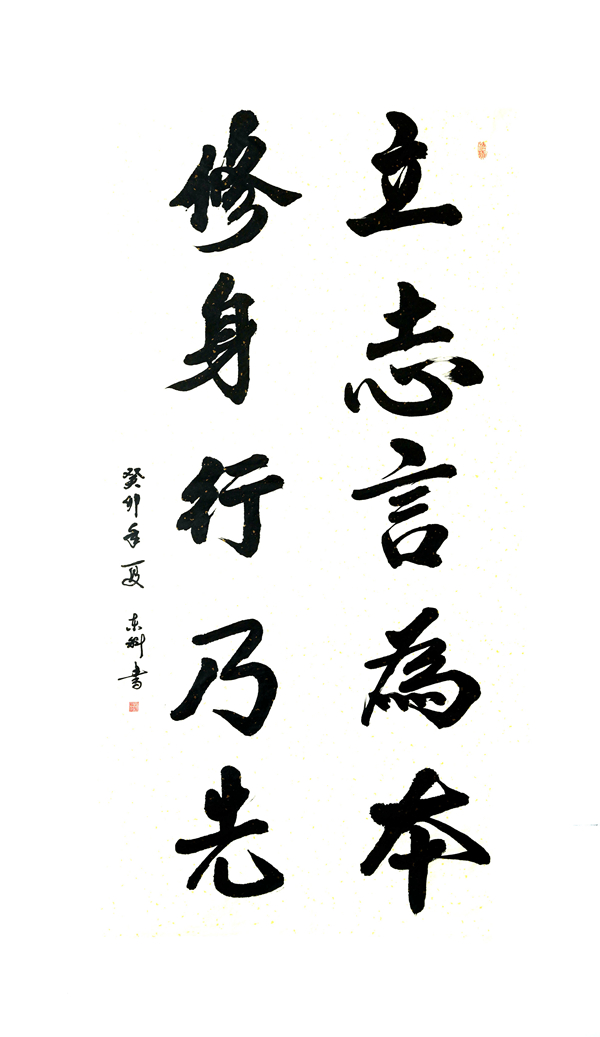 立志言為本
修身行乃先
癸卯年夏 东科书